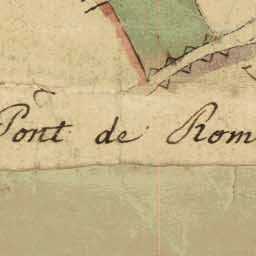 Pont de Rom